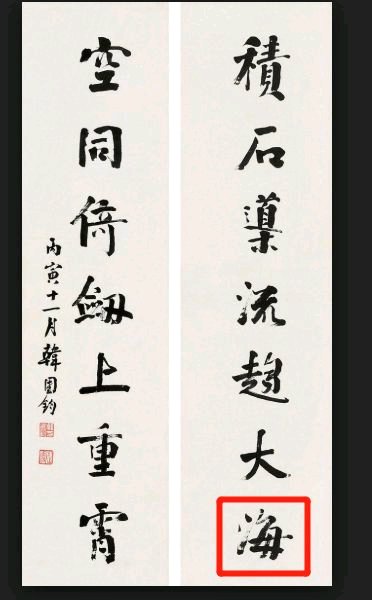 積石導流趨大海
空同倚劔上重霄
丙寅十一月韓國鈞